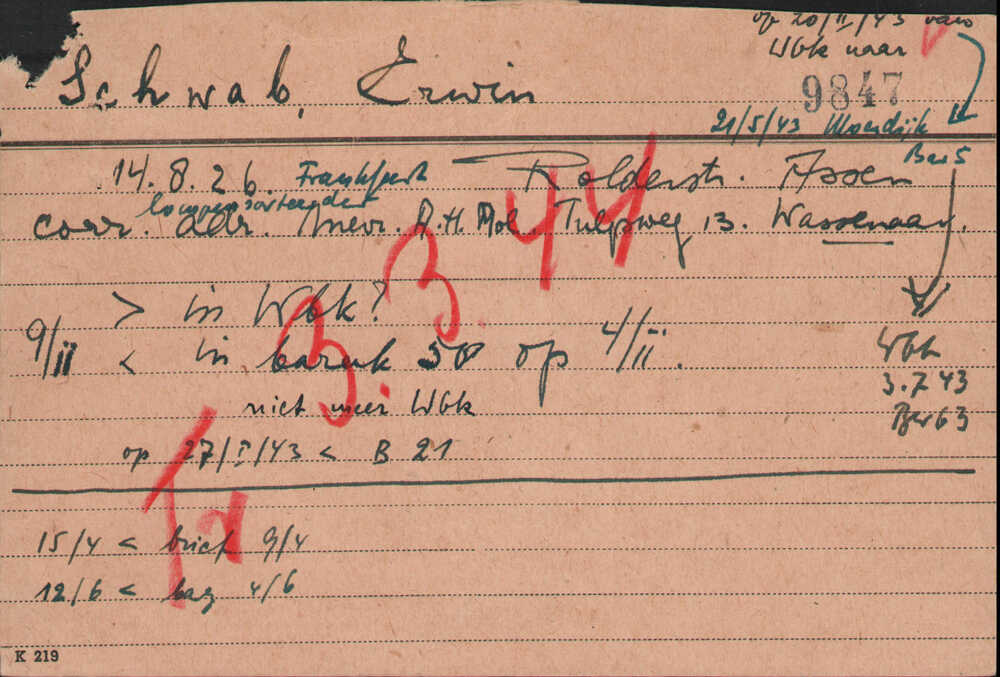 op 20/II/43 van
Wbk naar
9847
Schwab, Erwin
21/5/43 Moerdijk
Bar 5
14. 8. 26. Frankfurt Rolderstr. Assen
lompensorteerder
corr. adr. Mevr. A.H. Mol. Tulpweg 13. Wassenaar.
> in Wbk?
9/II < in barak 50 op 4/II.
niet meer Wbk
op 27/I/43 < B 21
Wbk
3.7 43
Bar 63
T 3.3.44
15/4 < brief 9/4
12/6 < bag 4/6
K 219